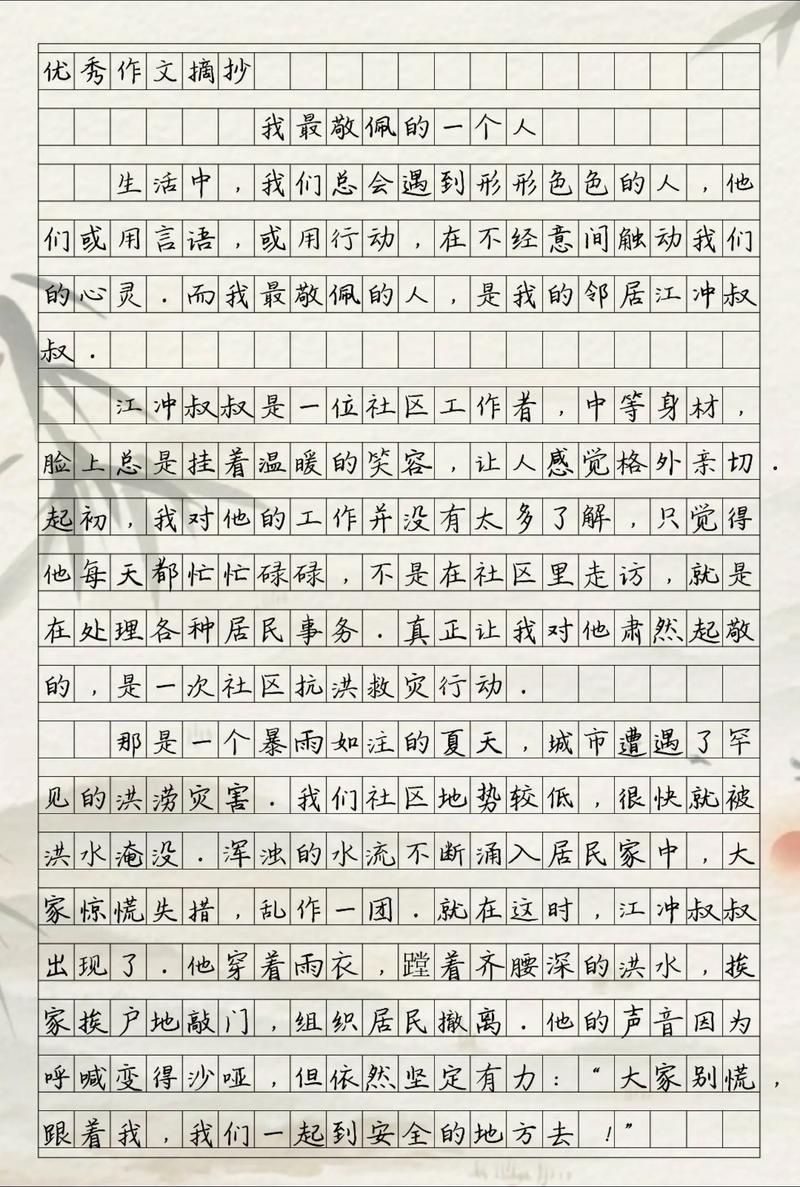 优秀作文摘抄
我最敬佩的一个人
生活中，我们总会遇到形形色色的人，他
们或用言语，或用行动，在不经意间触动我们
的心灵．而我最敬佩的人，是我的邻居江冲叔
叔．
江冲叔叔是一位社区工作者，中等身材，
脸上总是挂着温暖的笑容，让人感觉格外亲切．
起初，我对他的工作并没有太多了解，只觉得
他每天都忙忙碌碌，不是在社区里走访，就是
在处理各种居民事务．真正让我对他肃然起敬
的，是一次社区抗洪救灾行动．
那是一个暴雨如注的夏天，城市遭遇了罕
见的洪涝灾害．我们社区地势较低，很快就被
洪水淹没．浑浊的水流不断涌入居民家中，大
家惊慌失措，乱作一团．就在这时，江冲叔叔
出现了．他穿着雨衣，蹚着齐腰深的洪水，挨
家挨户地敲门，组织居民撤离．他的声音因为
呼喊变得沙哑，但依然坚定有力：“大家别慌，
跟着我，我们一起到安全的地方去！”